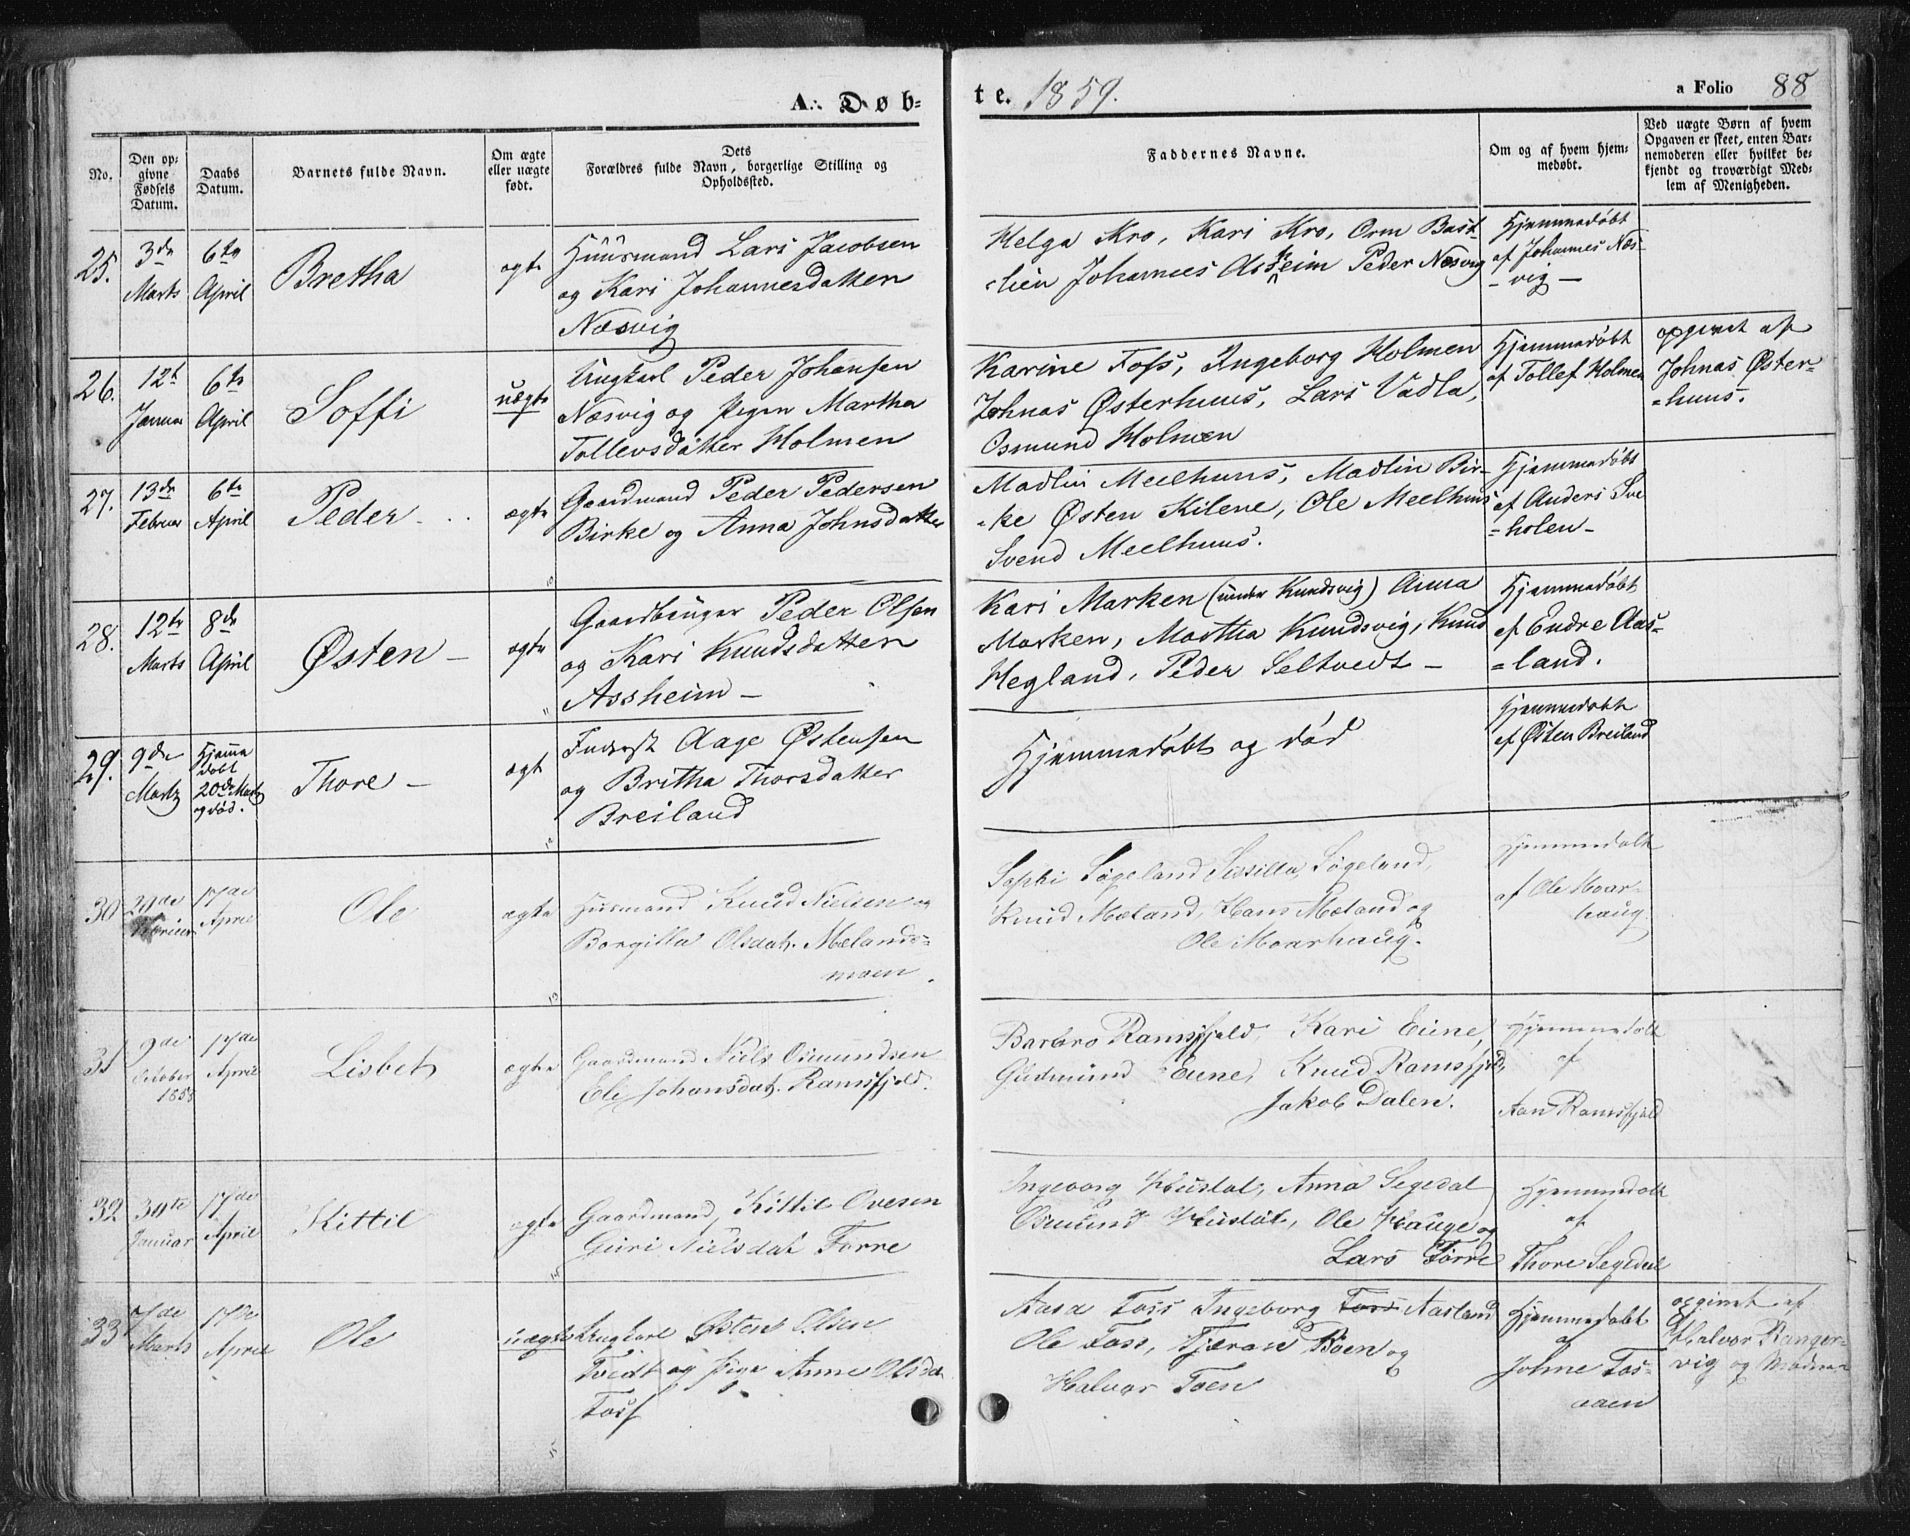 A. Døb-
te. 1859.
a Folio 88
No.
Den op-
givne
Fødsels
Datum.
Daabs
Datum.
Barnets fulde Navn.
Om ægte
eller uægte
født.
Dets
Forældres fulde Navn, borgerlige Stilling og
Opholdssted.
Faddernes Navne.
Om og af hvem hjem-
medøbt.
Ved uægte Børn af hvem
Opgaven er skeet, enten Bar-
nemoderen eller hvilket be-
kjendt og troværdigt Med-
lem af Menigheden.
25.
3de
Marts
6te
April
Bretha
ægte
Huusmand Lars Jacobsen
og Kari Johannesdatter
Næsvig
Helga Kro, Kari Kro, Orm Bast-
lien Johannes Asheim Peder Næsvig
Hjemmedøbt
af Johannes Næs-
-vig-
26.
12te
Januar
6te
April
Soffi
uægte
Ungkarl Peder Johansen
Næsvig og Pigen Martha
Tollevsdatter Holmen
Karine Foss, Ingeborg Holmen
Johnas Østerhuus, Lars Vadla,
Osmund Holmen
Hjemmedøbt
af Tollef Holmen
opgivet af
Johnas Øster-
=huus.
27.
13de
Februar
6te
April
Peder
ægte
Gaardmand Peder Pedersen
Birke og Anna Johnsdatter
Madlin Meelhuus, Madlin Bir-
ke Østen Kilene, Ole Meelhuus
Svend Meelhuus.
Hjemmedøbt
af Anders Sve
=holen-
28.
12te
Marts
8de
April
Østen -
ægte
Gaardbruger Peder Olsen
og Kari Knudsdatter
Assheim -
Kari Marken (under Kundsvig) Anna
Marken, Martha Kundsvig, Knud
Hegland, Peder Seltvedt -
Hjemmedøbt
af Endre Aas-
=land.
29.
9de
Martz
Hjemme
døbt
20de Martz
og død.
Thore -
ægte
Inderst Aage Østensen
og Britha Thorsdatter
Breiland
Hjemmedøbt og død
Hjemmedøbt
af Østen Breiland
30
Februar
17de
April
Ole
ægte
Huusmand Knud Nielsen og
Borgilla Olsdat. Mælands-
moen
Sophi Søgeland Sissilla Søgeland,
Knud Mæland, Hans Mæland og
Ole Moarhaug.
Hjemmedøbt
af Ole Moar-
haug
31
9de
October
1858
17de
April
Lisbet
ægte
Gaardmand Niels Osmundsen
Ele Johansdat. Ramsfjeld.
Barbro Ramsfjeld, Kari Eiene,
Gudmund Eiene, Knud Ramsfjeld,
Jakob Dalen.
Hjemmedøbt
af
Aan Ramsfjeld
32
Januar
17de
April
Kittil
ægte
Gaardmand Kittil Ovesen
Guri Nielsdat Førre
Ingeborg Husstøl, Anna Segedal
Osmund Husstøl, Ole Hauge og
Lars Førre
Hjemmedøbt
af
Thore Segedal
33
7de
Marts
17de
April
Ole
uægte
Ungkarl Østen Olsen
Tvedt og Pige Anne Olsdat
Foss
Aasa Foss Ingeborg Foss Aasland
Ole Foss, Tjæran Bøen og
Halvor Foen
Hjemmedøbt
af
Johne Fos-
aaen
opgivet af
Halvor Ranger-
vig og